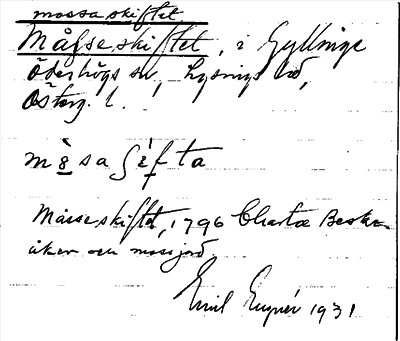 mossaskiftet
Måsseskiftet, i Gyllinge
Ödeshögs sn, Lysings hd,
Österg. l.
mɵ̀saʃìfta
Måsseskiftet, 1796 Charta Beskr.
åker och mossjord.
Emil 1931